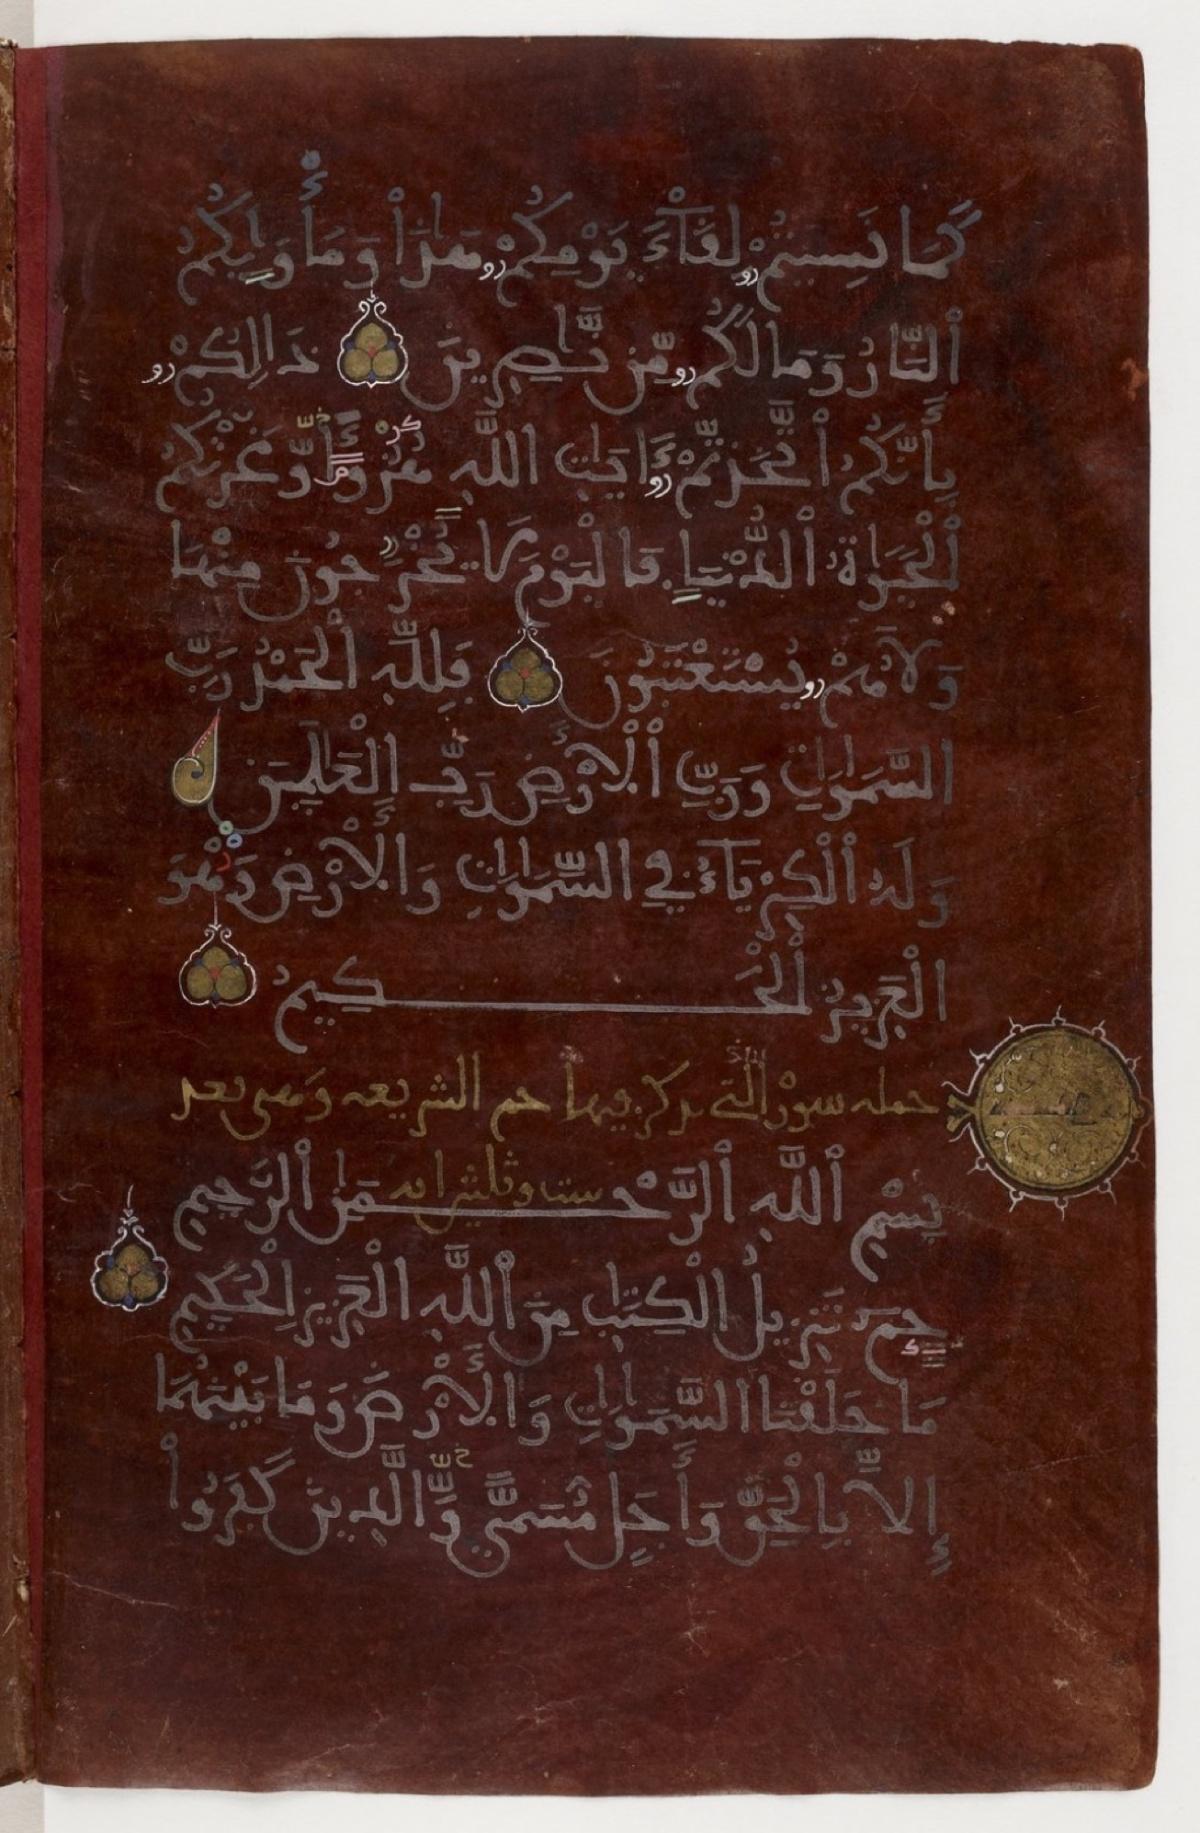 كَمَا نَسِيتُمْ لِقَآءَ يَوْمِكُمْ هَٰذَا وَمَأْوَىٰكُمُ
ٱلنَّارُ وَمَا لَكُم مِّن نَّٰصِرِينَ ذَٰلِكُم
بِأَنَّكُمُ ٱتَّخَذتُّمْ ءَايَٰتِ ٱللَّهِ هُزُؤًا وَّغَرَّتْكُمُ
ٱلْحَيَوٰةُ ٱلدُّنْيَا فَالْيَوْمَ لَا يُخْرَجُونَ مِنْهَا
وَلَا هُمْ يُسْتَعْتَبُونَ فَلِلَّهِ ٱلْحَمْدُ رَبِّ
السَّمَٰوَٰتِ وَرَبِّ ٱلْأَرْضِ رَبِّ الْعَٰلَمِينَ
وَلَهُ ٱلْكِبْرِيَآءُ فِي السَّمَٰوَٰتِ وَالْأَرْضِ وَهُوَ
الْعَزِيزُ الْحَكِيمُ
جمله سور التى يذكر فيها حم الشريعه وهى بعد
ست وثلثين ايه
بِسْمِ ٱللَّهِ ٱلرَّحْمَٰنِ ٱلرَّحِيمِ
حمٓ تَنزِيلُ الْكِتَٰبِ مِنَ ٱللَّهِ الْعَزِيزِ الْحَكِيمِ
مَا خَلَقْنَا السَّمَٰوَٰتِ وَالْأَرْضَ وَمَا بَيْنَهُمَا
إِلَّا بِالْحَقِّ وَأَجَلٍ مُّسَمًّى وَّالَّذِينَ كَفَرُواْ